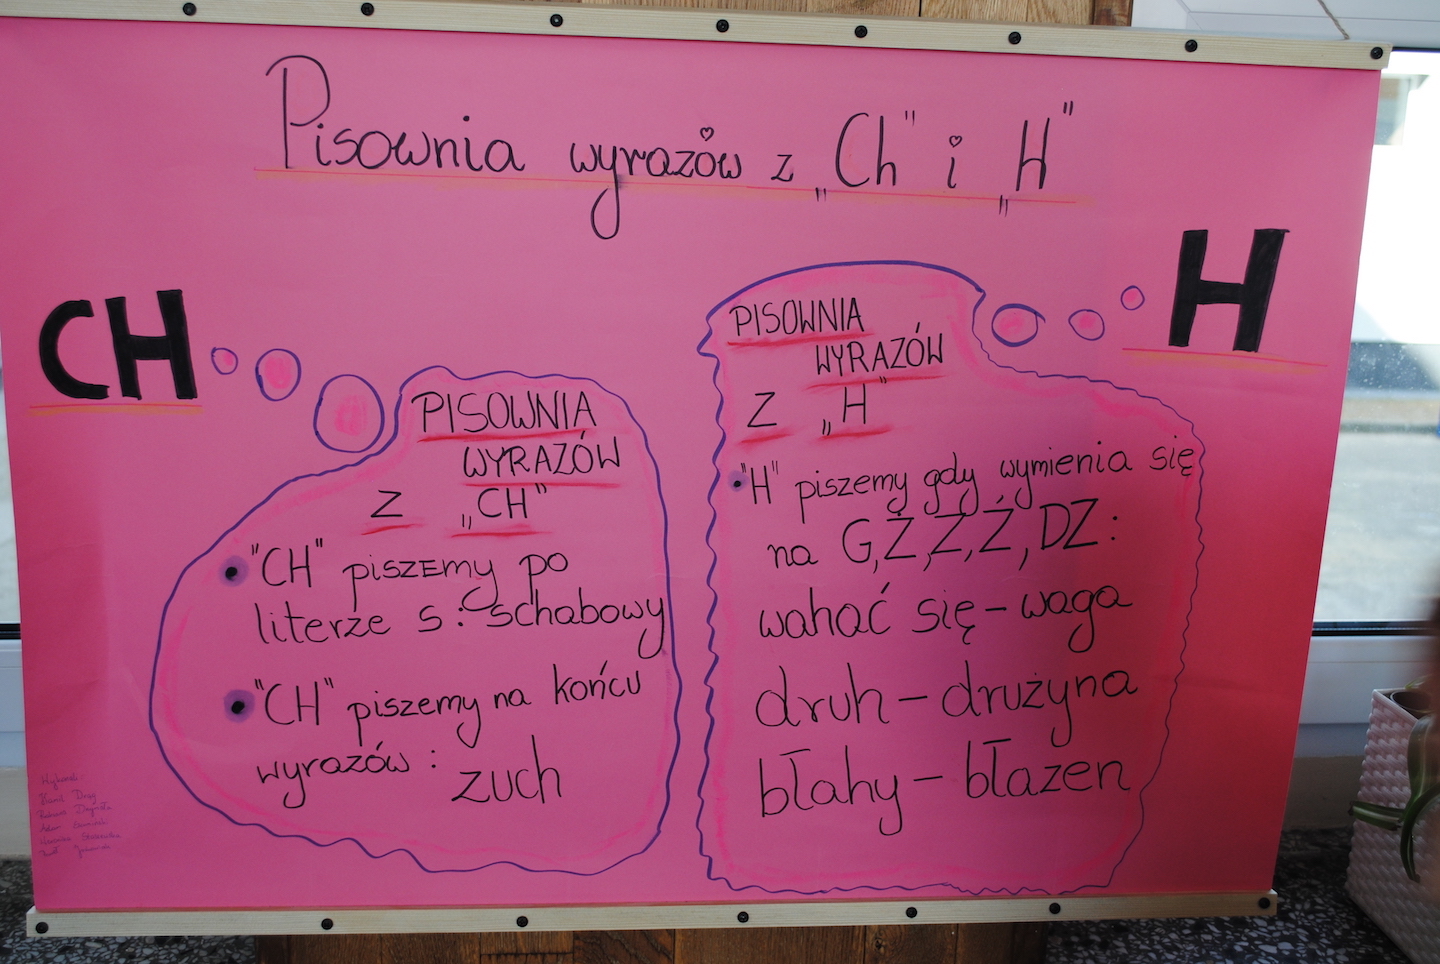 Pisownia wyrazów z „Ch" i „H"
CH
PISOWNIA
WYRAZÓW
Z „CH"
"CH" piszemy po
literze s: schabowy
"CH" piszemy na końcu
wyrazów: zuch
H
PISOWNIA
WYRAZÓW
Z „H"
"H" piszemy gdy wymienia się
na G, Ż, Z, Ź, DZ:
wahać się – waga
druh – drużyna
błahy – błazen